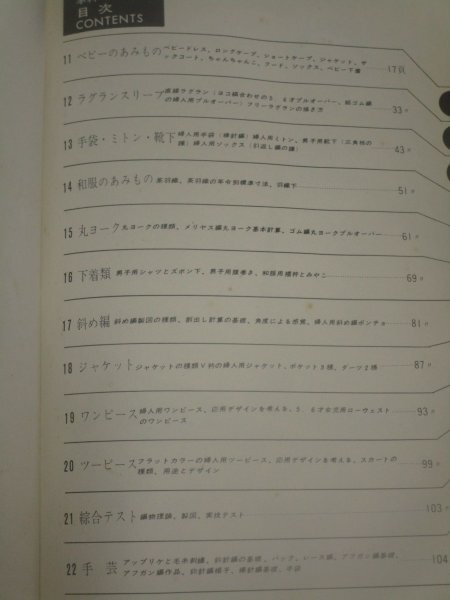 目次
CONTENTS
11 ベビーのあみもの ベビードレス、ロングケープ、ショートケープ、ジャケット、サックコート、ちゃんちゃんこ、フード、ソックス、ベビー下着 17頁
12 ラグランスリーブ 直線ラグラン(ヨコ編合わせの5、6才プルオーバー、総ゴム編の婦人用プルオーバー)フリーラグランの描き方 33〃
13 手袋・ミトン・靴下 婦人用手袋(棒針編)婦人用ミトン、男子用靴下(三角柱の踵)婦人用ソックス(引返し編の踵) 43〃
14 和服のあみもの 茶羽織、茶羽織の年令別標準寸法、羽織下 51〃
15 丸ヨーク 丸ヨークの種類、メリヤス編丸ヨーク基本計算、ゴム編丸ヨークプルオーバー 61〃
16 下着類 男子用シャツとズボン下、男子用腹巻き、和服用襦袢とみやこ 69〃
17 斜め編 斜め編製図の種類、割出し計算の基礎、角度による感覚、婦人用斜め編ポンチョ 81〃
18 ジャケット ジャケットの種類V衿の婦人用ジャケット、ポケット3種、ダーツ2種 87〃
19 ワンピース 婦人用ワンピース、応用デザインを考える、5、6才女児用ローウェストのワンピース 93〃
20 ツーピース フラットカラーの婦人用ツーピース、応用デザインを考える、スカートの種類、用途とデザイン 99〃
21 綜合テスト 編物理論、製図、実技テスト 103〃
22 手芸 アップリケと毛糸刺繍、鈎針編の基礎、バッグ、レース編、アフガン編基礎、アフガン編作品、鈎針編帽子、棒針編基礎、手袋 104